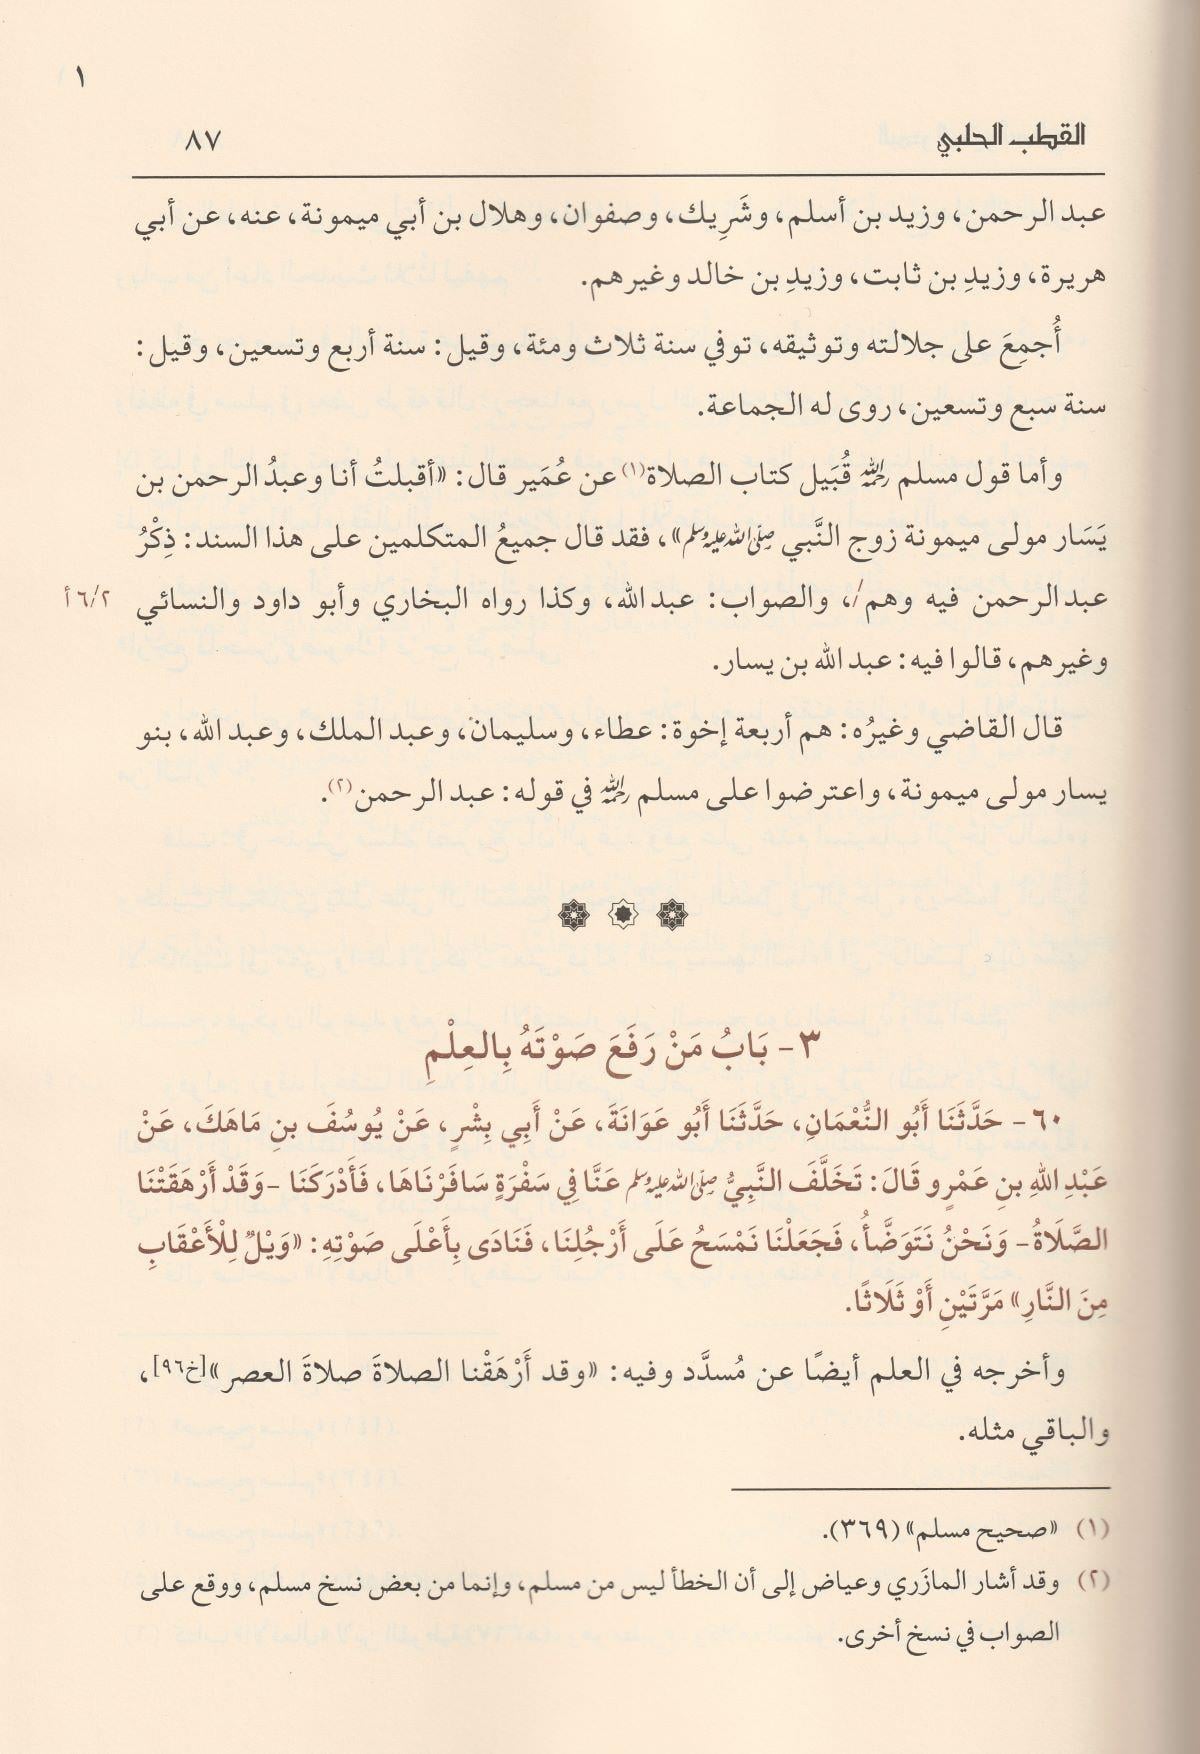 ١
القطب الحلبي
٨٧
عبد الرحمن، وزيد بن أسلم، وشَرِيك، وصفوان، وهلال بن أبي ميمونة، عنه، عن أبي
هريرة، وزيدِ بن ثابت، وزيدِ بن خالد وغيرهم.
أُجمِعَ على جلالته وتوثيقه، توفي سنة ثلاث ومئة، وقيل: سنة أربع وتسعين، وقيل:
سنة سبع وتسعين، روى له الجماعة.
وأما قول مسلم رحمه الله قُبَيل كتاب الصلاة(١) عن عُمَير قال: «أقبلتُ أنا وعبدُ الرحمن بن
يَسَار مولى ميمونة زوج النَّبي ﷺ»، فقد قال جميعُ المتكلمين على هذا السند: ذِكْرُ
عبد الرحمن فيه وهم/، والصواب: عبد الله، وكذا رواه البخاري وأبو داود والنسائي
٦/٢أ
وغيرهم، قالوا فيه: عبد الله بن يسار.
قال القاضي وغيرُه: هم أربعة إخوة: عطاء، وسليمان، وعبد الملك، وعبد الله، بنو
يسار مولى ميمونة، واعترضوا على مسلم رحمه الله في قوله: عبد الرحمن(٢).
٣- بَابُ مَنْ رَفَعَ صَوْتَهُ بِالعِلْمِ
٦٠- حَدَّثَنَا أَبُو النُّعْمَانِ، حَدَّثَنَا أَبُو عَوَانَةَ، عَنْ أَبِي بِشْرٍ، عَنْ يُوسُفَ بنِ مَاهَكَ، عَنْ
عَبْدِ اللهِ بنِ عَمْرٍو قَالَ: تَخَلَّفَ النَّبِيُّ ﷺ عَنَّا فِي سَفْرَةٍ سَافَرْنَاهَا، فَأَدْرَكَنَا -وَقَدْ أَرْهَقَتْنَا
الصَّلَاةُ- وَنَحْنُ نَتَوَضَّأُ، فَجَعَلْنَا نَمْسَحُ عَلَى أَرْجُلِنَا، فَنَادَى بِأَعْلَى صَوْتِهِ: «وَيْلٌ لِلْأَعْقَابِ
مِنَ النَّارِ» مَرَّتَيْنِ أَوْ ثَلَاثًا.
وأخرجه في العلم أيضًا عن مُسدَّد وفيه: «وقد أَرْهَقْنا الصلاةَ صلاةَ العصر»[خ٩٦]،
والباقي مثله.
(١) «صحيح مسلم» (٣٦٩).
(٢) وقد أشار المازَري وعياض إلى أن الخطأ ليس من مسلم، وإنما من بعض نسخ مسلم، ووقع على
الصواب في نسخ أخرى.